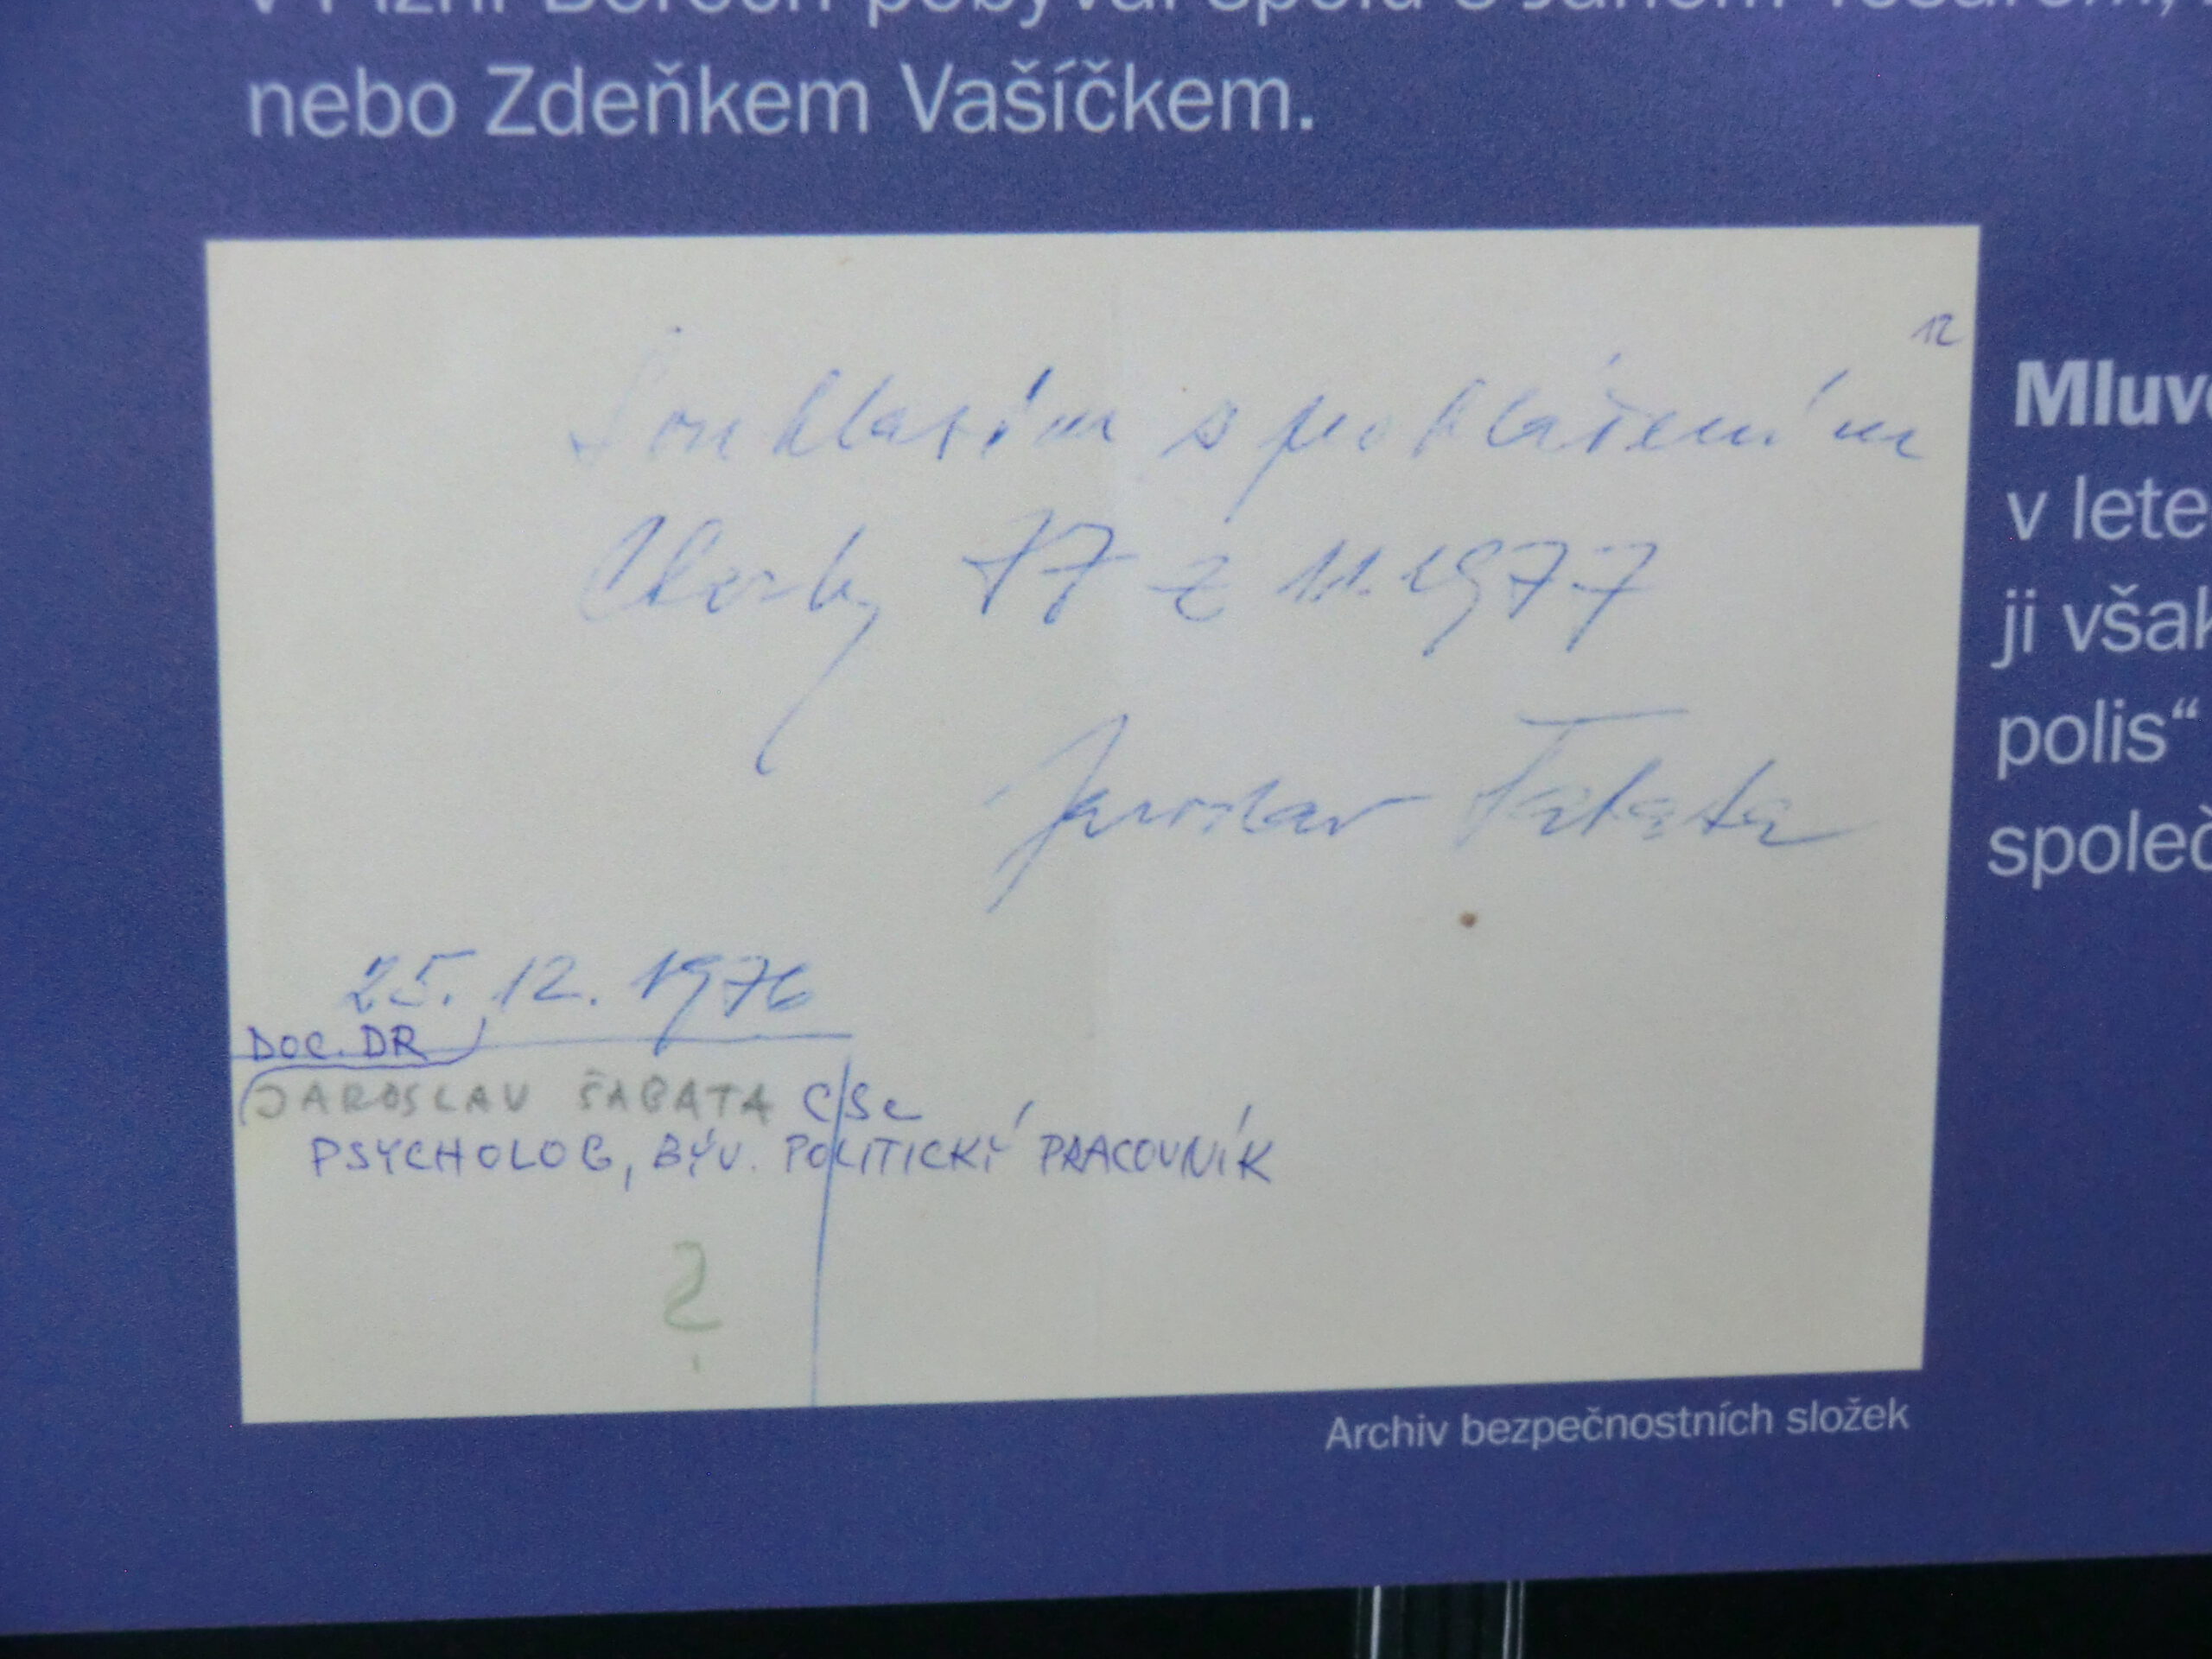 nebo Zdeňkem Vašíčkem.
12
Souhlasím s prohlášením
Charty 77 z 1.1.1977
Jaroslav Šabata
25. 12. 1976
DOC. DR
JAROSLAV ŠABATA CSc
PSYCHOLOG, BÝV. POLITICKÝ PRACOVNÍK
?
Archiv bezpečnostních složek
v lete
ji však
polis“
společ